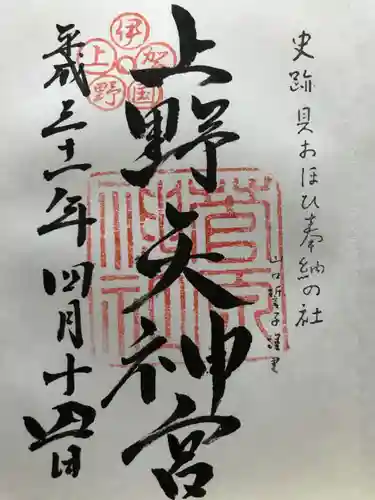 史跡 貝おほひ奉納の社
山口誓子謹書
上野天神宮
伊賀国上野
菅原神社
平成三十一年四月十四日